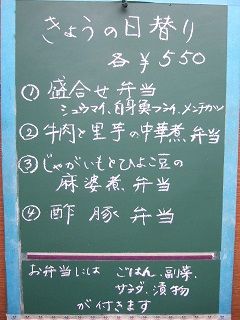 きょうの日替り
各¥550
① 盛合せ弁当
シュウマイ、白身魚フライ、メンチカツ
② 牛肉と里芋の中華煮弁当
③ じゃがいもとひよこ豆の
麻婆煮 弁当
④ 酢豚弁当
お弁当には ごはん、副菜、
サラダ、漬物
が付きます